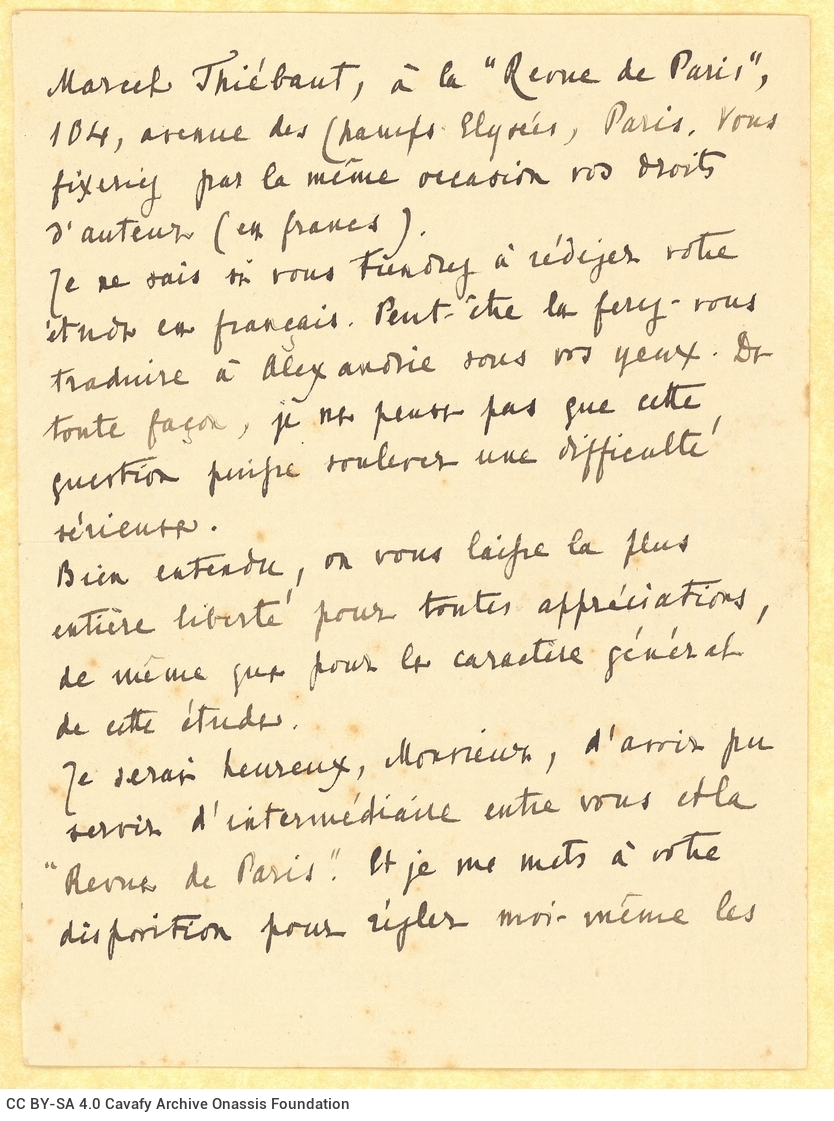 Marcel Thiébaut, à la "Revue de Paris",
104, avenue des Champs Elysées, Paris. Vous
fixeriez par la même occasion vos droits
d'auteur (en francs).
Je ne sais si vous tiendrez à rédiger votre
étude en français. Peut-être la ferez-vous
traduire à Alexandrie sous vos yeux. De
toute façon, je ne pense pas que cette
question puisse soulever une difficulté
sérieuse.
Bien entendu, on vous laisse la plus
entière liberté pour toutes appréciations,
de même que pour le caractère général
de cette étude.
Je serai heureux, Monsieur, d'avoir pu
servir d'intermédiaire entre vous et la
"Revue de Paris". Et je me mets à votre
disposition pour régler moi-même les
CC BY-SA 4.0 Cavafy Archive Onassis Foundation